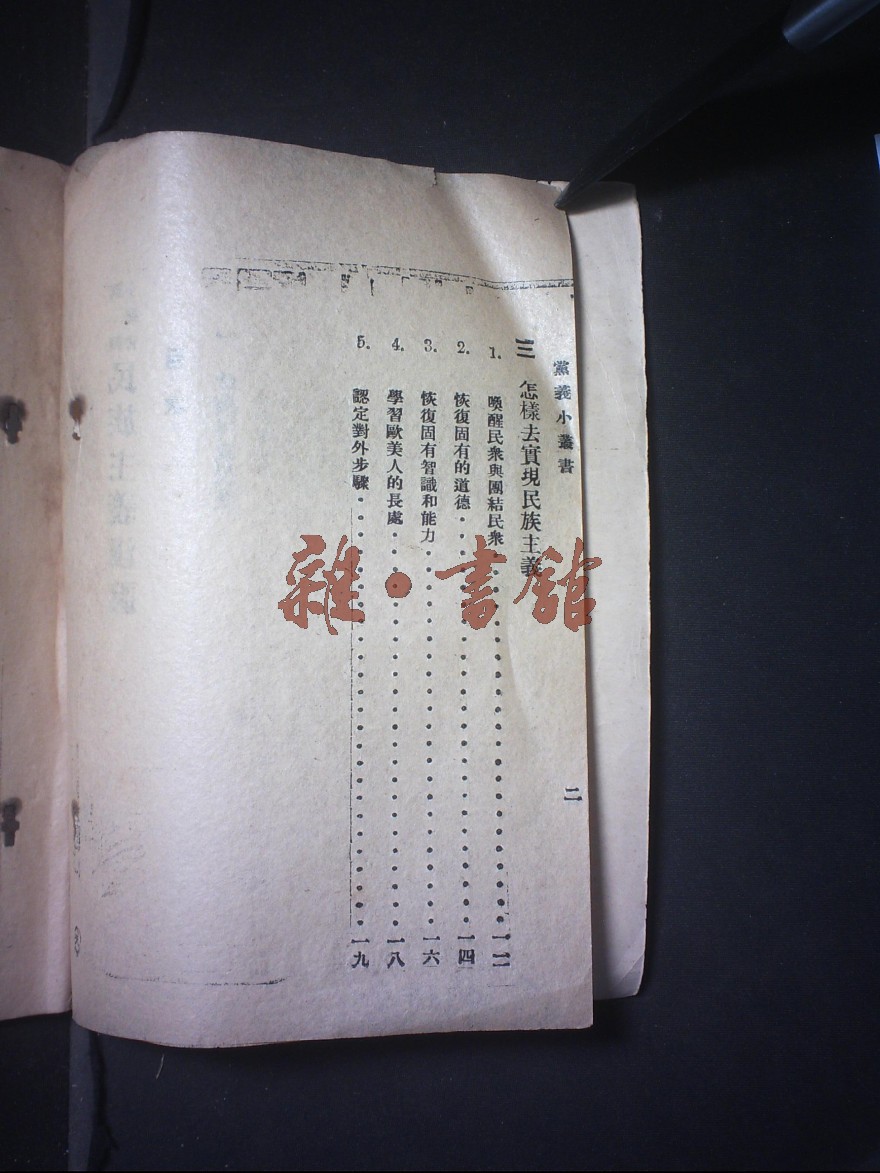 黨義小叢書
二
三 怎樣去實現民族主義
1. 喚醒民衆與團結民衆 一二
2. 恢復固有的道德 一四
3. 恢復固有智識和能力 一六
4. 學習歐美人的長處 一八
5. 認定對外步驟 一九
雜·書館